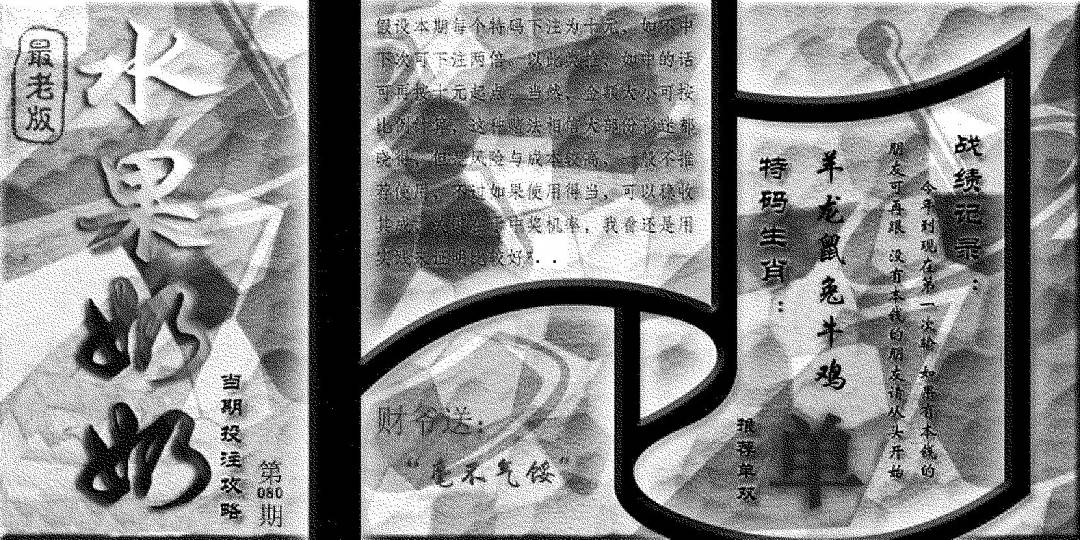 最老版
水果奶奶
当期投注攻略
第080期
假设本期每个特码下注为十元，如不中
下次可下注两倍，以此类推，如中的话
可再按十元起点，当然，金额大小可按
比例计算，这种赌法相信大部份彩迷都
晓得，但是风险与成本较高，一般不推
荐使用，不过如果使用得当，可以稳收
其成
中奖机率，我看还是用
实战来证明比较好
财爷送：
“毫不气馁”
战绩记录：
今年到现在第一次输 如果有本钱的
朋友可再跟 没有本钱的朋友请从头开始
羊龙鼠兔牛鸡
特码生肖：
推荐单双
单